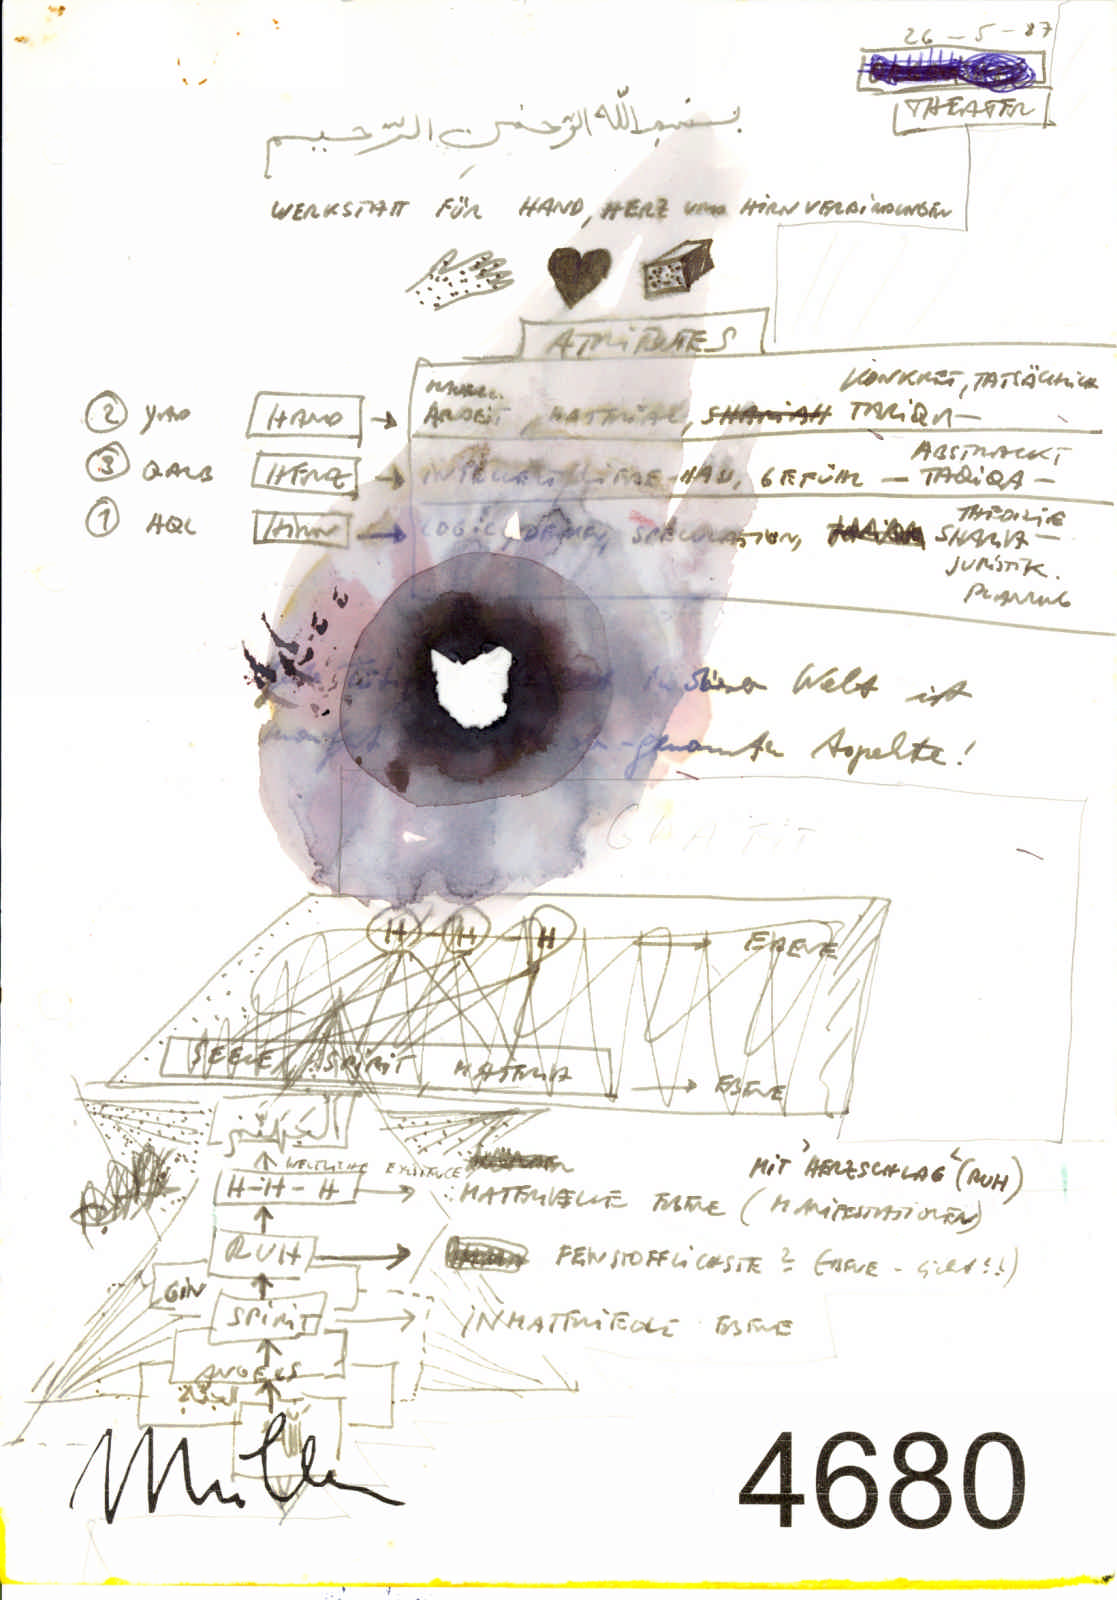 26-5-87
THEATER
بسم الله الرحمن الرحيم
WERKSTATT FÜR HAND, HERZ UND HIRNVERBINDUNGEN
ATRIBUTES
KONKRET, TATSÄCHLICH
② YAD HAND → ARBEIT, MATERIAL, SHARIAH TARIQA-
ABSTRACKT
③ QALB HERZ → LIEBE-HASS, GEFÜHL - TAQIQA-
THEORIE
① AQL HIRN → LOGIC, DENKEN, SPECULATION, SHARIA-
JURISTIK.
PLANUNG
in dieser Welt ist
so-genannten Aspekte!
H - H - H → EBENE
SEELE, SPIRIT MATERIA → EBENE
WELTLICHE EXISTENCE
MIT 'HERZSCHLAG' (RUH)
H-H-H → MATERIELLE EBENE (MANIFESTATIONEN)
RUH → FEINSTOFFLICHSTE ? (EBENE - GIBT!!)
GIN
SPIRIT → INMATERIELLE EBENE
ANGELS
Müller
4680